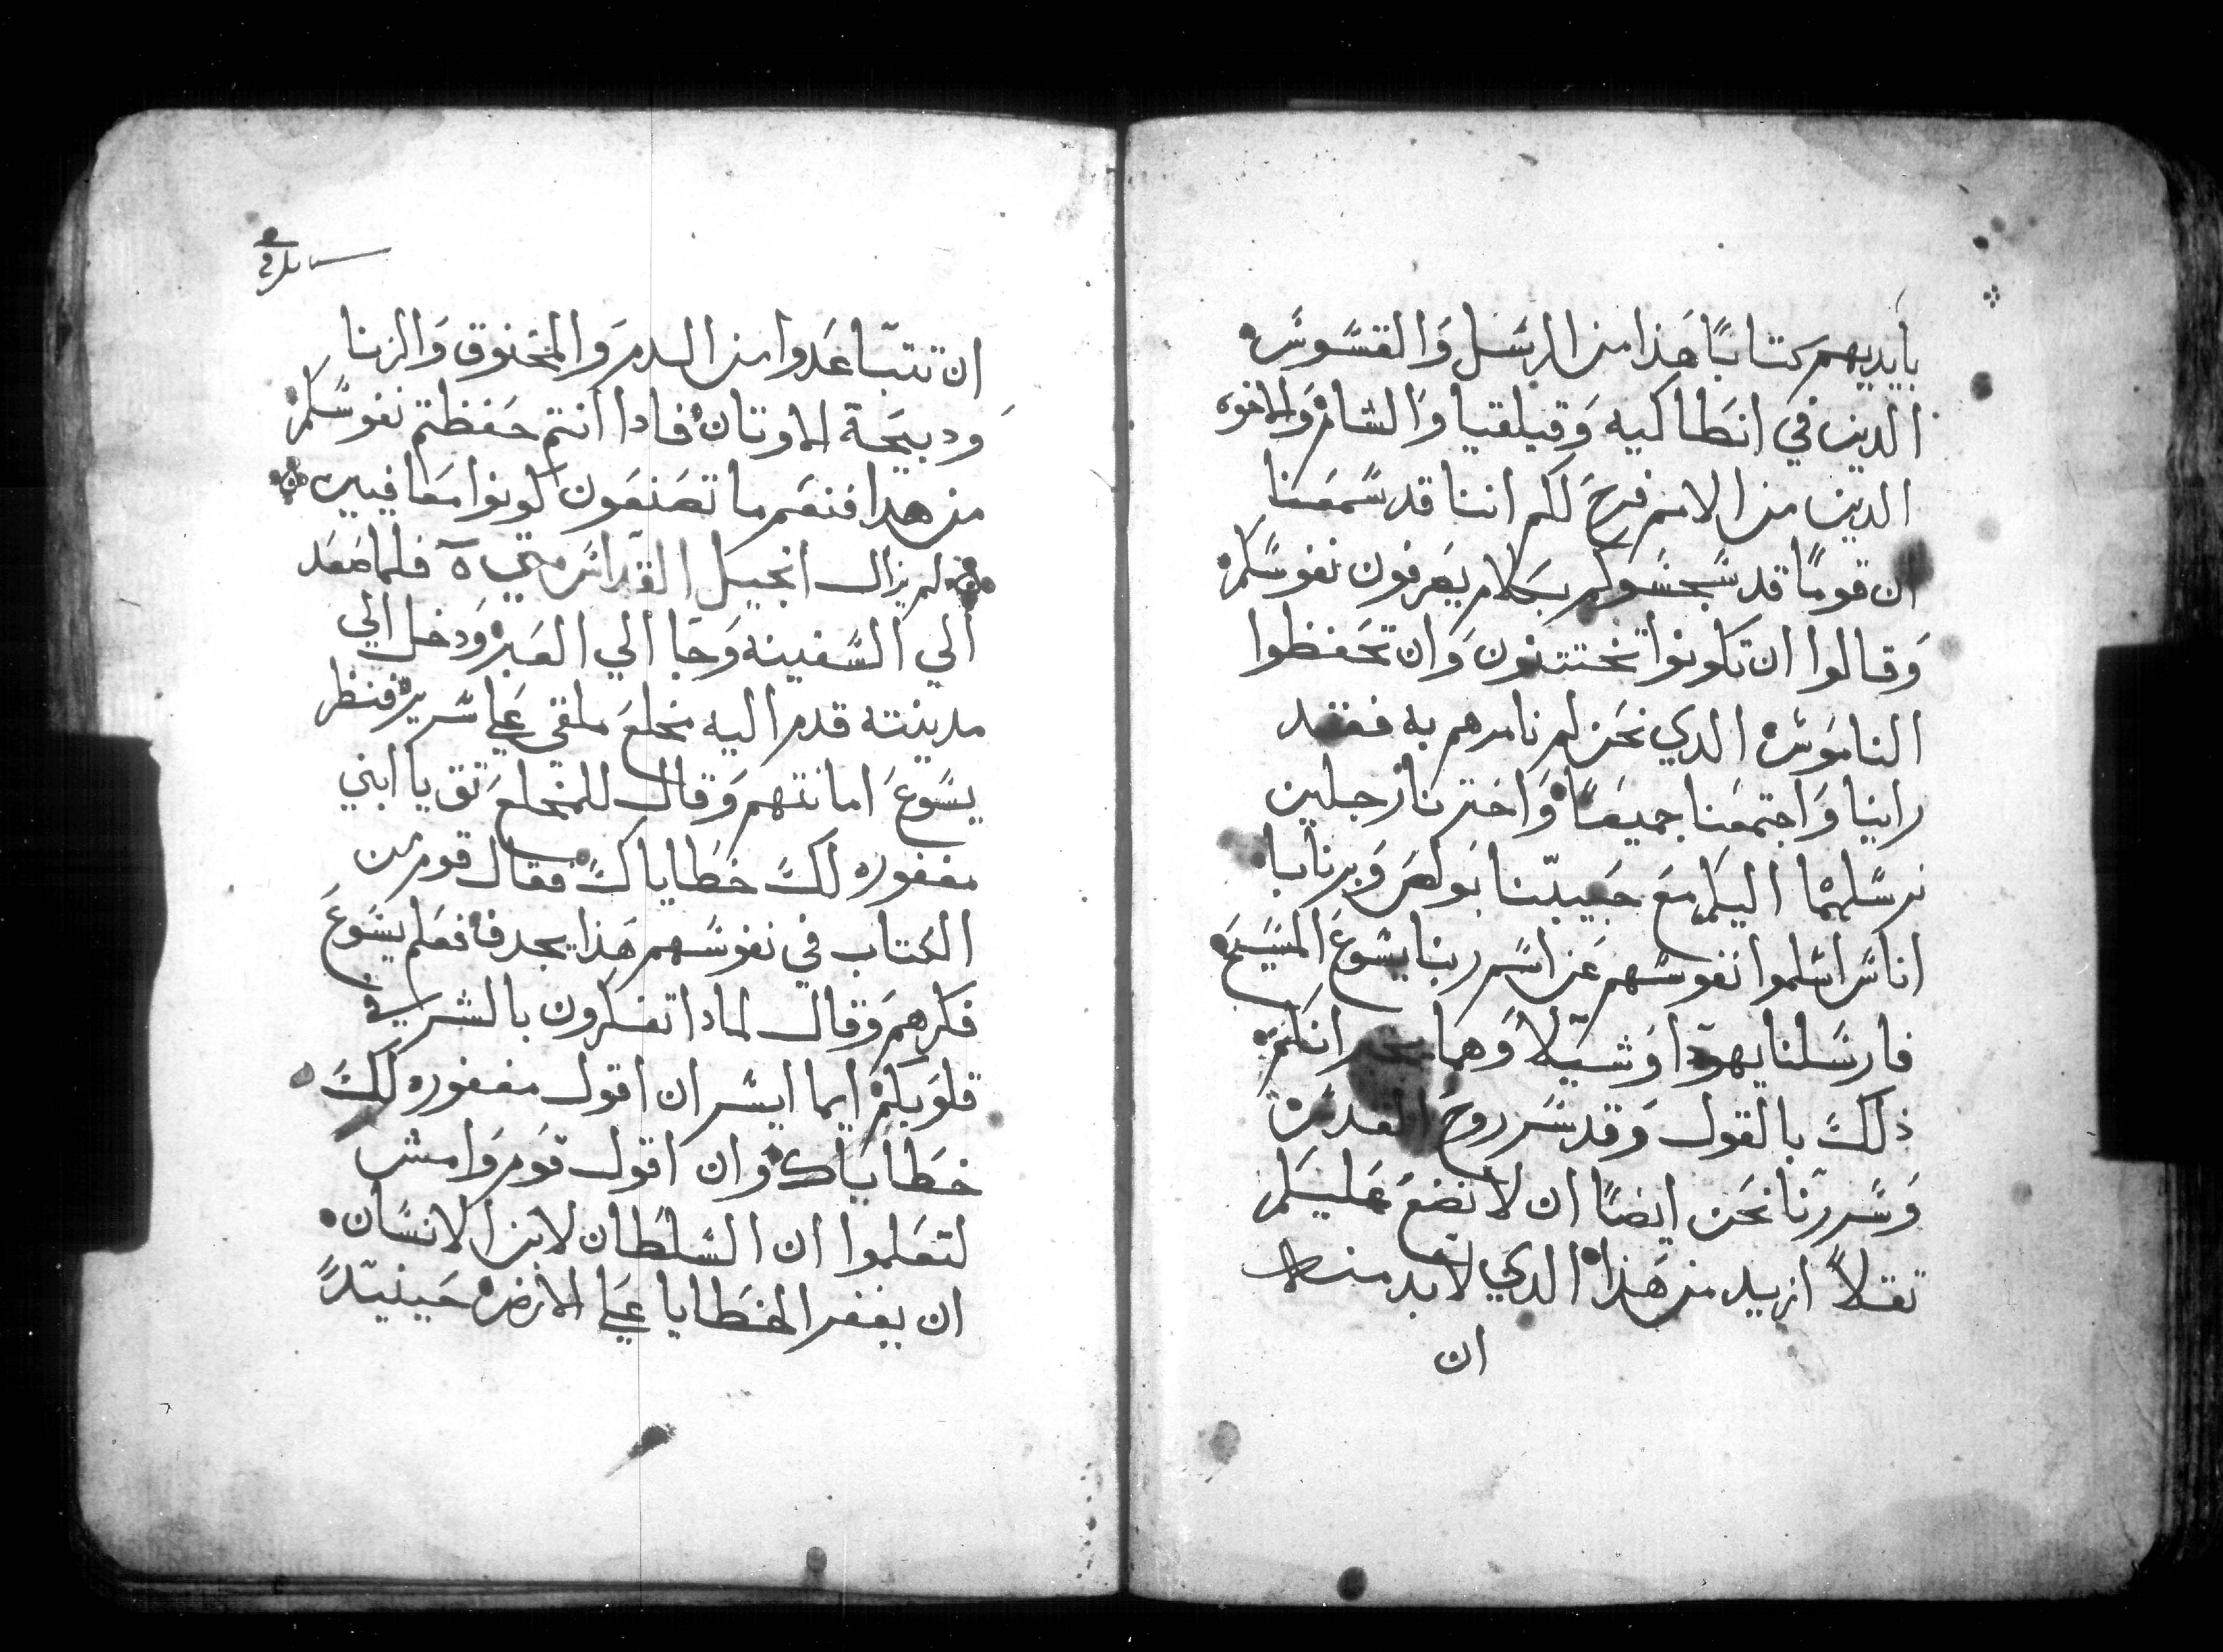 بايديهم كتابًا هَذا من الرسَل وَالقسّوسَ
الدين في انطَاكيه وَقيلقيا وَالشام وَالاخوه
الدين من الامم فرحَ لكم اننا قد سَّمعَنا
ان قومًا قد سَّجسَوكم بكلام يصَرفون نفوسَّكم
وَقالوا ان تكونوا تختتنون وَان تحَفظوا
الناموَسَ الدي نحَن لم نامرهم به فقد
راينا وَاجتمعَنا جميعًا وَاخترنا رَجلين
نرسَّلهما اليكم معَ حَبيبّنا بَولصَ وَبرنابا
اناسَ اسَّلموا نفوسَّهم عَن اسَّم ربنا يسَوعَ المسَيحَ
فارسَّلنا يهوَدا وَشيَلاً وَهما انكم
ذلكَ بالقول وَقد سَّر روحَ القدسَ
وَسَّررنا نحَن ايضًا ان لا نضعَ عَليكم
تقلاً ازيد من هَذا الدي لا بد منه
ان
ان تتبّاعَدوا من الدم وَالمخنوق وَالزنا
وَدبيحَة الاوتان فادا انتم حَفظتم نفوسَّكم
من هدا فنعَم ما تصَنعَون كونوا معَافيين
لم يزال انجيل القدّاسَ متي ه فلما صَعَد
الي السَّفينه وَجَا الي العَبر وَدخل الي
مدينته قدم اليه مخلعَ ملقي عَلي سَّرير فنظر
يسَوعَ امانتهم وَقال للمخلعَ تق يا ابني
مغفوره لكَ خطَاياكَ فقال قوم من
الكتاب في نفوسَّهم هَذا يجدف فعَلم يسَوعَ
فكرهم وَقال لمادا تفكرون بالشر في
قلوَبكم ايما ايسَّر ان اقول مغفوره لكَ
خطَايَاك وان اقول قوَم وَامش
لتعَلموا ان السَّلطَان لابن الانسَّان
ان يغفر الخطَايا عَلي الارضَ حَينيدً